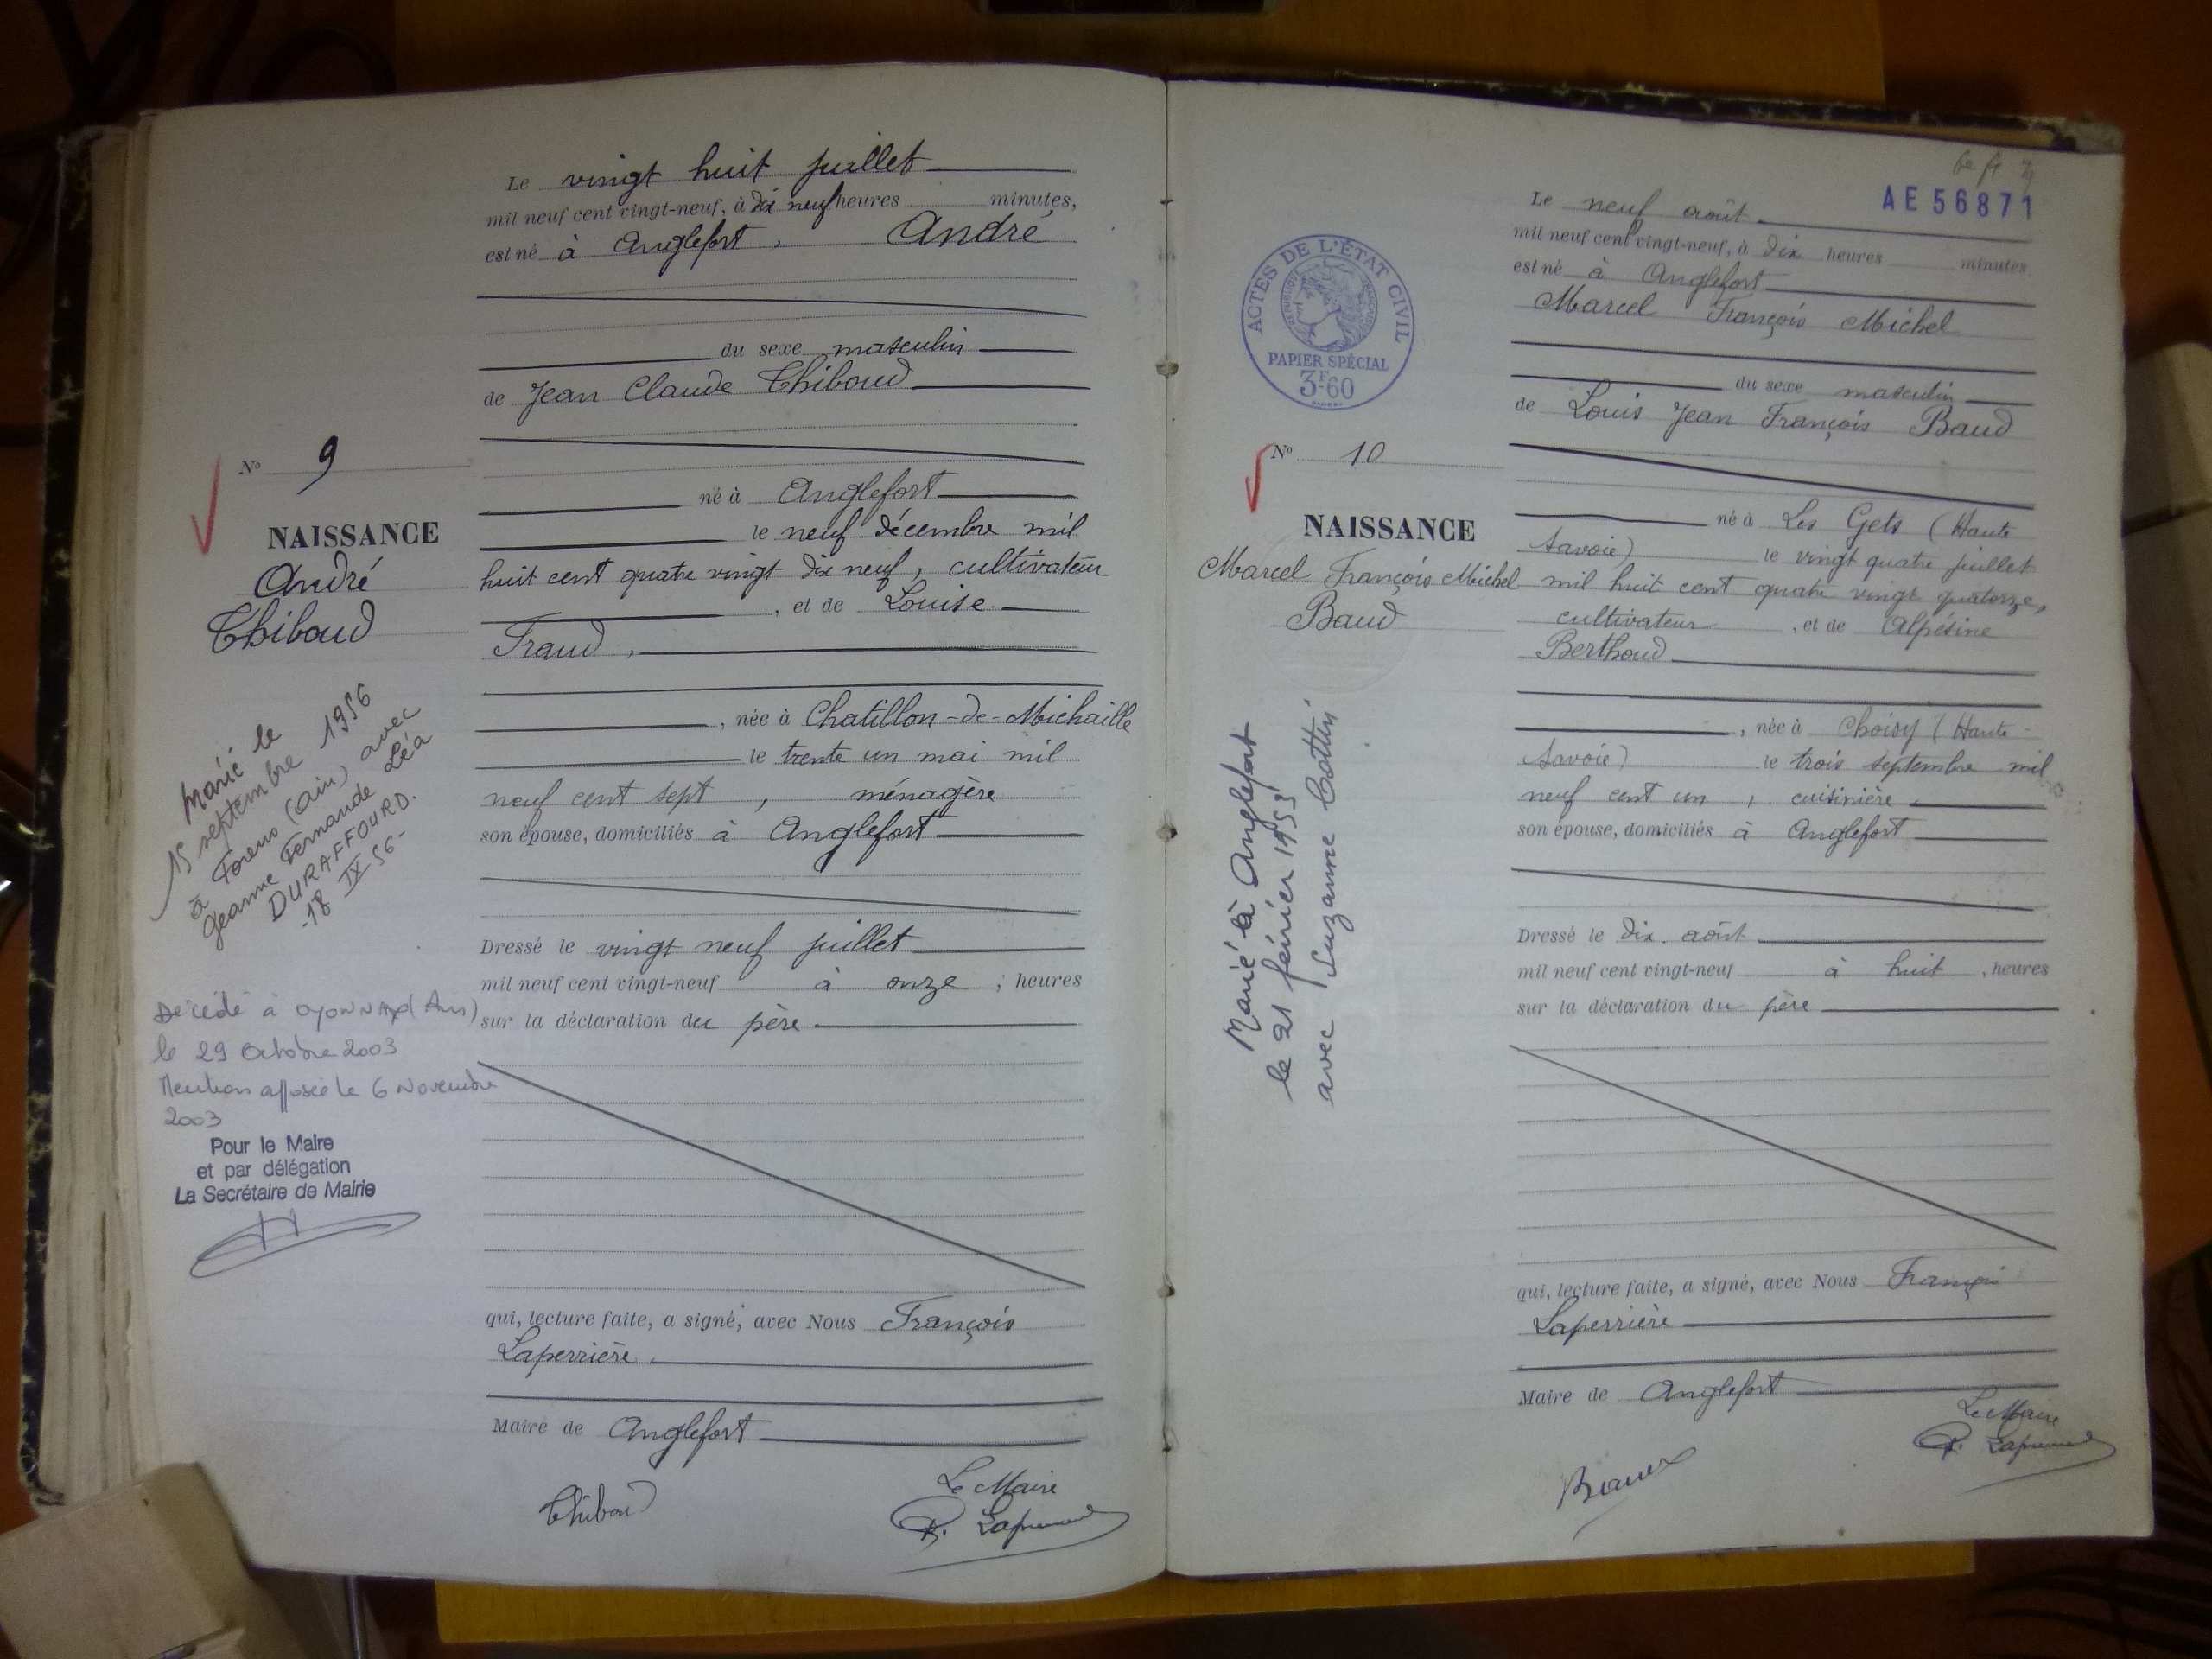 Le vingt huit juillet
mil neuf cent vingt-neuf, à dix neuf heures minutes,
est né à Anglefort, André
du sexe masculin
de Jean Claude Thiboud
né à Anglefort
le neuf décembre mil
huit cent quatre vingt dix neuf, cultivateur
, et de Louise
Fraud,
, née à Chatillon-de-Michaille
le trente un mai mil
neuf cent sept, ménagère
son épouse, domiciliés à Anglefort
Dressé le vingt neuf juillet
mil neuf cent vingt-neuf à onze ; heures
sur la déclaration du père.
qui, lecture faite, a signé, avec Nous François
Laperrière.
Maire de Anglefort
Thiboud
Le Maire
Nº 9
NAISSANCE
André
Thiboud
Marié le
15 septembre 1956
à (Ain) avec
Jeanne Fernande Léa
DURAFFOURD.
-18 IX 56-
Décédé à OYONNAX (Ain)
le 29 Octobre 2003
Mention apposée le 6 Novembre
2003
Pour le Maire
et par délégation
La Secrétaire de Mairie
AE 56871
Le neuf août
mil neuf cent vingt-neuf, à dix heures minutes
est né à Anglefort
Marcel François Michel
du sexe masculin
de Louis Jean François Baud
né à Les Gets (Haute
Savoie) le vingt quatre juillet
mil huit cent quatre vingt quatorze,
cultivateur, et de Alpésine
Berthoud
, née à Choisy (Haute-
Savoie) le trois septembre mil
neuf cent un, cuisinière
son épouse, domiciliés à Anglefort
Dressé le dix août
mil neuf cent vingt-neuf à huit, heures
sur la déclaration du père
qui, lecture faite, a signé, avec Nous François
Laperrière
Maire de Anglefort
Le Maire
ACTES DE L'ÉTAT CIVIL
RÉPUBLIQUE FRANÇAISE
PAPIER SPÉCIAL
3F60
Nº 10
NAISSANCE
Marcel François Michel
Baud
Marié à Anglefort
le 21 février 1953
avec Suzanne Cottin